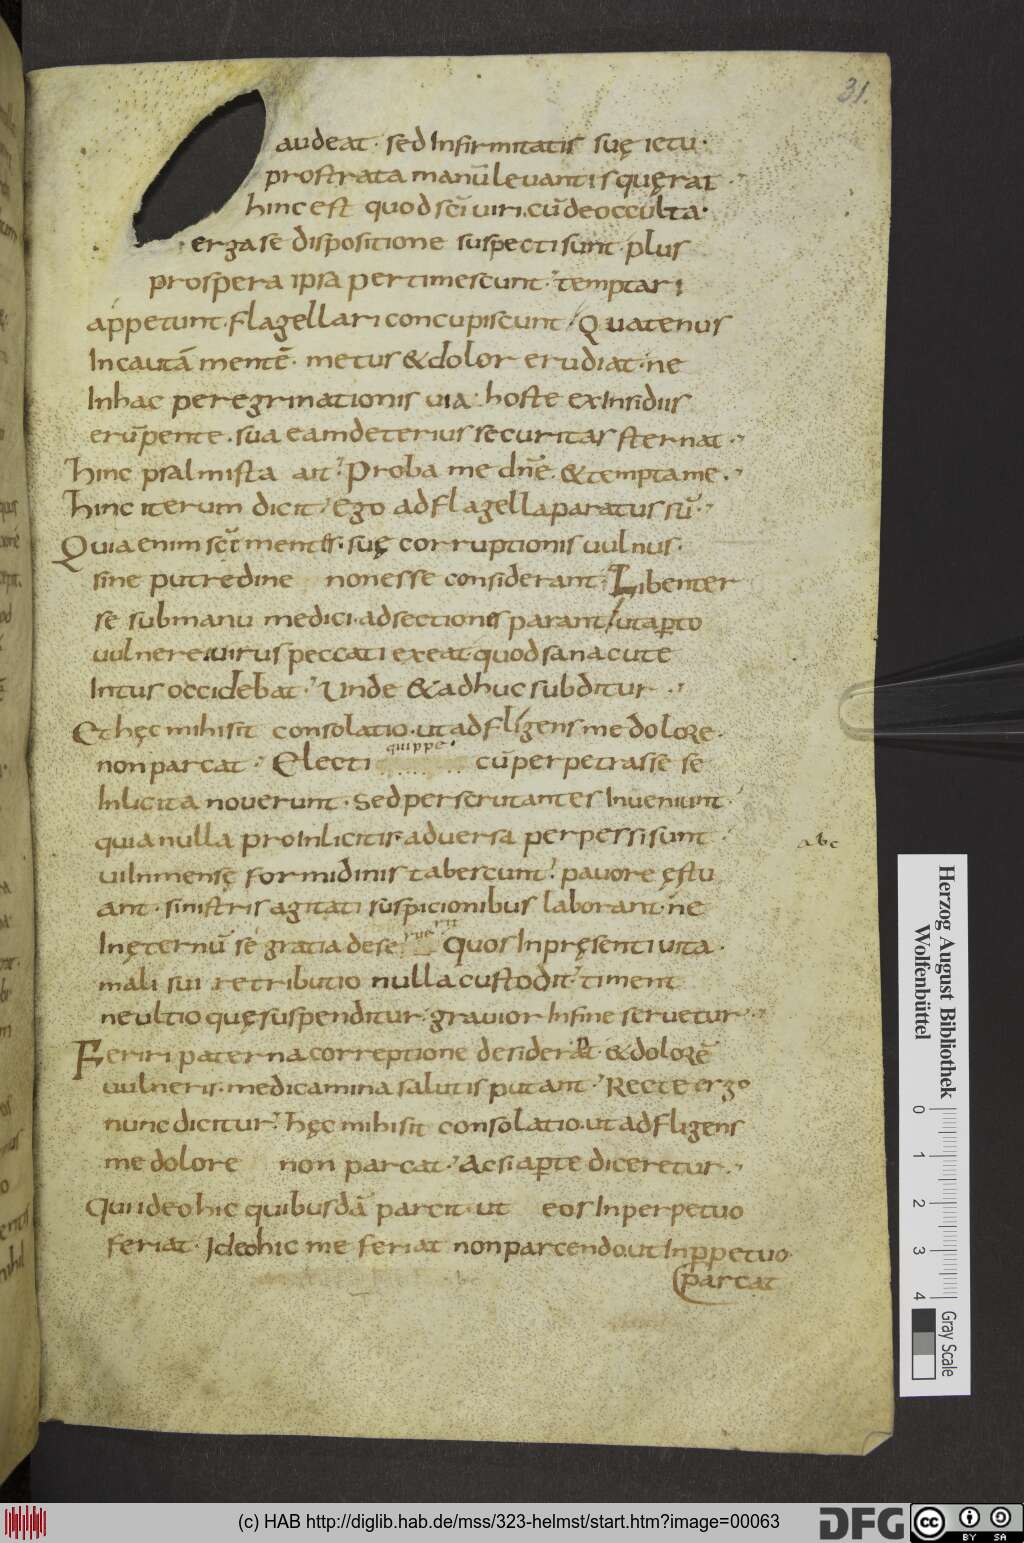 31.
audeat · sed Infirmitatis suę ictu·
prostrata manū leuantis quęrat ·
hinc est quod sc̄i uiri. cū de occulta·
erga se dispositione suspecti sunt· plus
prospera ipsa pertimescunt· temptari
appetunt. flagellari concupiscunt / Quatenus
Incautā mentē· metus & dolor erudiat· ne
In hac peregrinationis uia· hoste ex Insidiis
erūpente· sua eam deterius securitas sternat·
hinc psalmista ait· Proba me dn̄e· & tempta me·
hinc iterum dicit· ego ad flagella paratus sū·
Quia enim sc̄i mentis· suę corruptionis uulnus·
sine putredine non esse considerant· Libenter
se sub manu medici· ad sectionis parant / ut apto
uulnere uirus peccati exeat· quod sana cute
Intus occidebat· Unde & adhuc subditur ·
Et hęc mihi sit consolatio· ut adfligens me dolore·
quippe·
non parcat· Electi cū perpetrasse se
Inlicita nouerunt· sed perscrutantes Inueniunt·
quia nulla pro Inlicitis aduersa perpessi sunt·
abc
ui Inmensę formidinis tabescunt· pauore ęstu
ant· sinistris agitati suspicionibus laborant· ne
In ęternū se gratia dese quos In pręsenti uita·
mali sui retributio nulla custodit· timent
ne ultio quę suspenditur· grauior In fine seruetur·
Feriri paterna correptione desiderat· & dolorē
uulneris· medicamina salutis putant· Recte ergo
nunc dicitur· hęc mihi sit consolatio· ut adfligens
me dolore non parcat· Ac si apte diceretur·
Qui ideo hic quibusdā parcit· ut eos In perpetuo
feriat· Ideo hic me feriat non parcendo. ut In ppetuo
parcat
Herzog August Bibliothek
Wolfenbüttel
0 1 2 3 4
Gray Scale
(c) HAB http://diglib.hab.de/mss/323-helmst/start.htm?image=00063
DFG
cc
BY SA